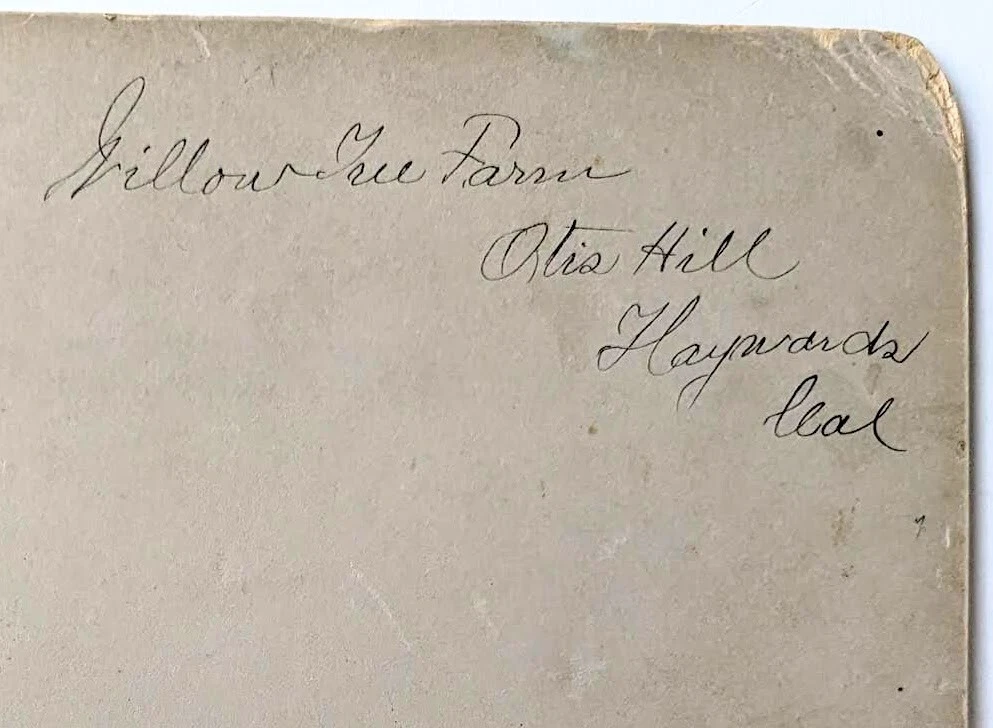 Willow Tree Farm
Otis Hill
Haywards
Cal